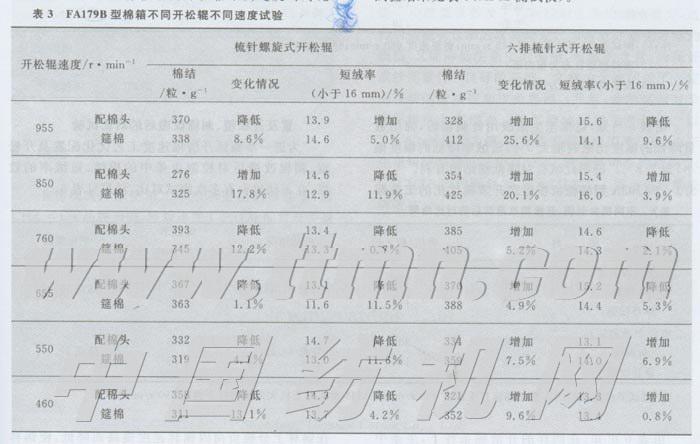 表 3 FA179B 型棉箱不同开松辊不同速度试验
开松辊速度/r·min⁻¹ 梳针螺旋式开松辊 六排梳针式开松辊
棉结 变化情况 短绒率 棉结 变化情况 短绒率(小于 16 mm)/%
/粒·g⁻¹ (小于 16 mm)/% /粒·g⁻¹
955 配棉头 370 降低 13.9 增加 328 增加 15.6 降低
筵棉 338 8.6% 14.6 5.0% 412 25.6% 14.1 9.6%
850 配棉头 276 增加 14.6 降低 354 增加 15.4 增加
筵棉 325 17.8% 12.9 11.9% 425 20.1% 16.0 3.9%
760 配棉头 393 降低 13.4 降低 385 增加 14.6 降低
筵棉 345 12.2% 13.3 0.7% 405 5.2% 14.3 2.1%
655 配棉头 367 降低 13.1 降低 370 增加 15.2 降低
筵棉 363 1.1% 11.6 11.5% 388 4.9% 14.4 5.3%
550 配棉头 332 降低 14.7 降低 334 增加 13.1 增加
筵棉 319 13.0 11.6% 359 7.5% 14.0 6.9%
460 配棉头 358 降低 14.3 降低 321 增加 增加
筵棉 311 13.1% 13.7 4.2% 352 9.6% 13.4 0.8%
www.ttmn.com
中国纺机网